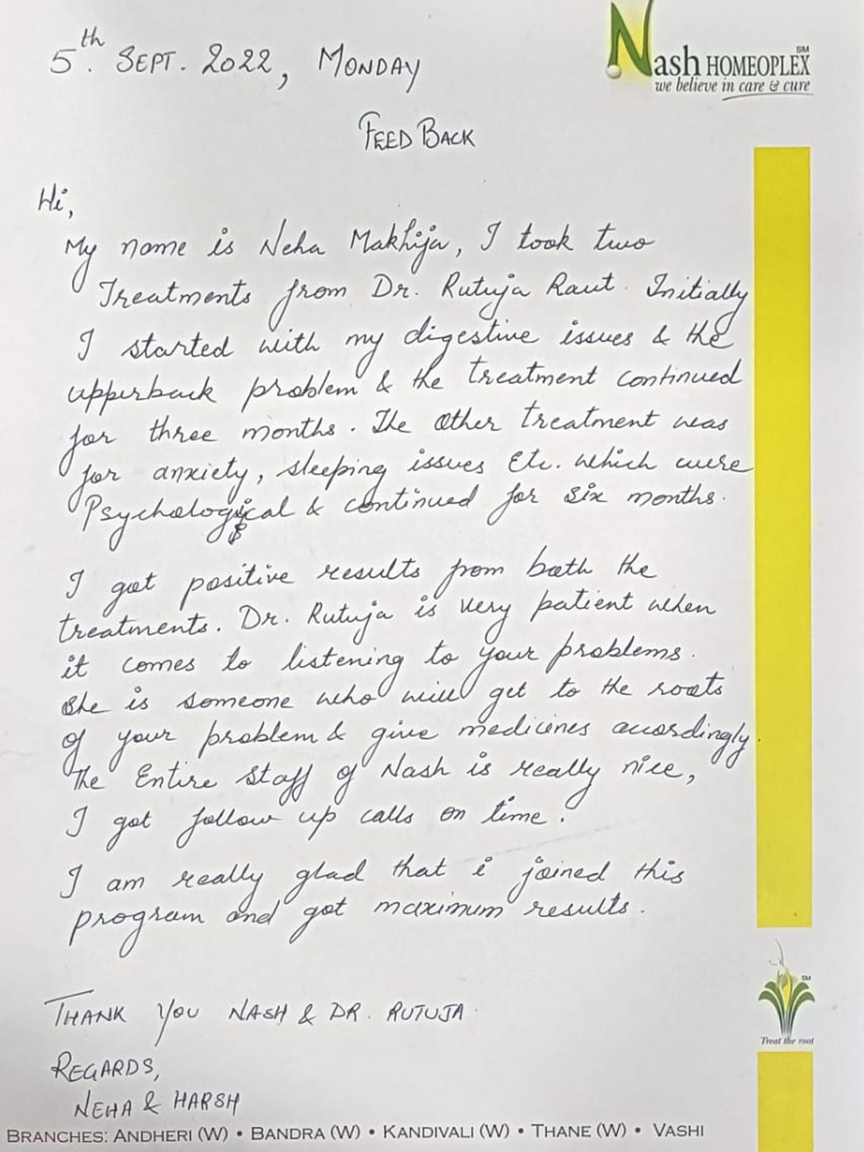 5th. SEPT. 2022, MONDAY
Nash HOMEOPLEX SM
we believe in care & cure
FEED BACK
Hi,
My name is Neha Makhija, I took two
Treatments from Dr. Rutuja Raut. Initially
I started with my digestive issues & the
upperback problem & the treatment continued
for three months. The other treatment was
for anxiety, sleeping issues Etc. which were
Psychological & continued for six months.
I got positive results from both the
treatments. Dr. Rutuja is very patient when
it comes to listening to your problems.
She is someone who will get to the roots
of your problem & give medicines accordingly.
The Entire staff of Nash is really nice,
I got follow up calls on time.
I am really glad that i joined this
program and got maximum results.
THANK YOU NASH & DR. RUTUJA.
SM
Treat the root
REGARDS,
NEHA & HARSH
BRANCHES: ANDHERI (W) • BANDRA (W) • KANDIVALI (W) • THANE (W) • VASHI